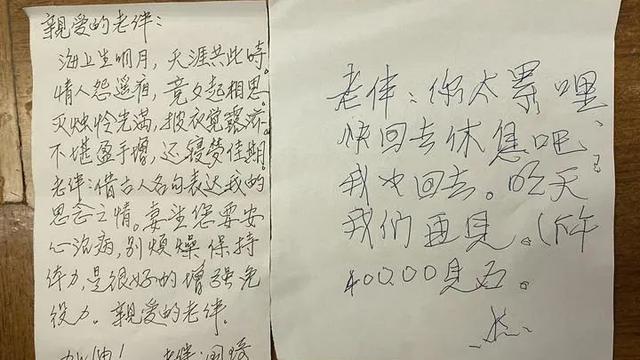 親爱的老伴:
海上生明月，天涯共此時。
情人怨遥夜，竟夕起相思。
灭烛怜光满，披衣觉露滋。
不堪盈手赠，还寝夢佳期。
老伴:借古人名句表达我的
思念之情。要坚
心治病，别煩燥保持
体力是很好的增强免
疫力。親爱的老伴。
加油！
老伴:你太累哩、
快回去休息吧、
我也回去。明天
我们再見。(下午